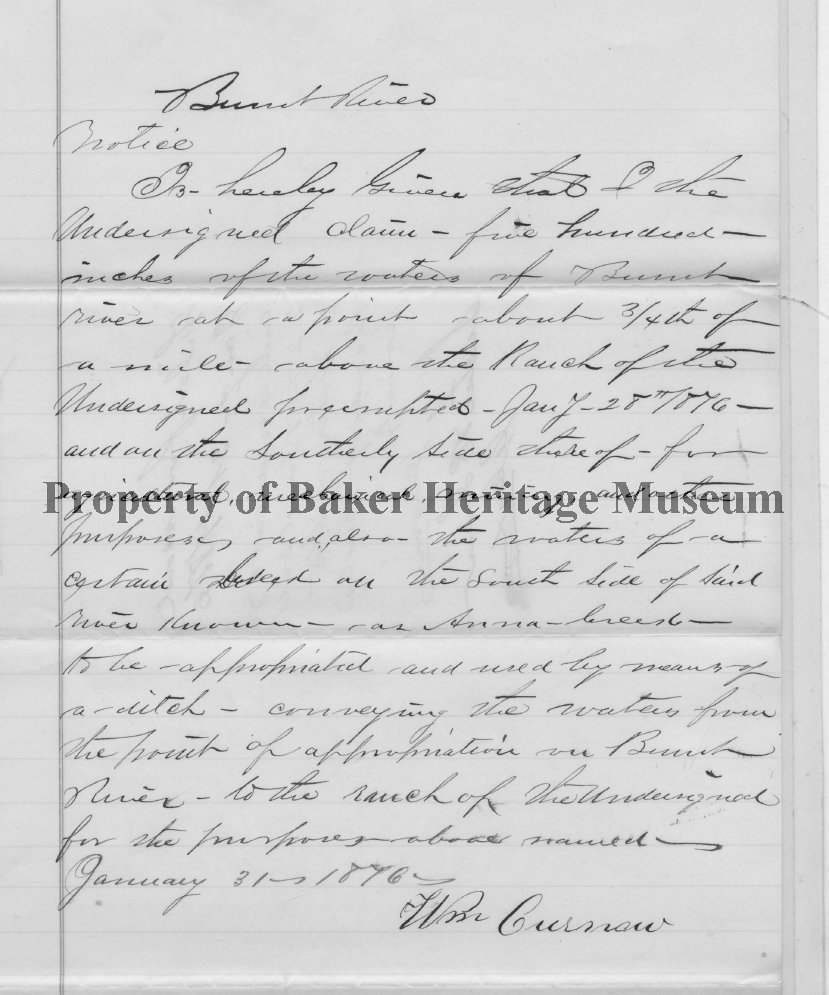 Burnt River
Notice
Is hereby Given that I the
Undersigned claim - five hundred -
inches of the waters of Burnt
river at a point about 3/4th of
a mile - above the Ranch of the
Undersigned preempted - Jany - 28th 1876 -
and on the Southerly Side thereof - for
agricultural, mechanical, mining, and other
Property of Baker Heritage Museum
purposes, and also - the waters of a
certain Creek on the South Side of Said
river Known - as Anna - Creek -
to be appropriated and used by means of
a ditch - conveying the waters from
the point of appropriation on Burnt
River - to the ranch of the Undersigned
for the purposes above named -
January 31 - 1876 -
Wm Curnow